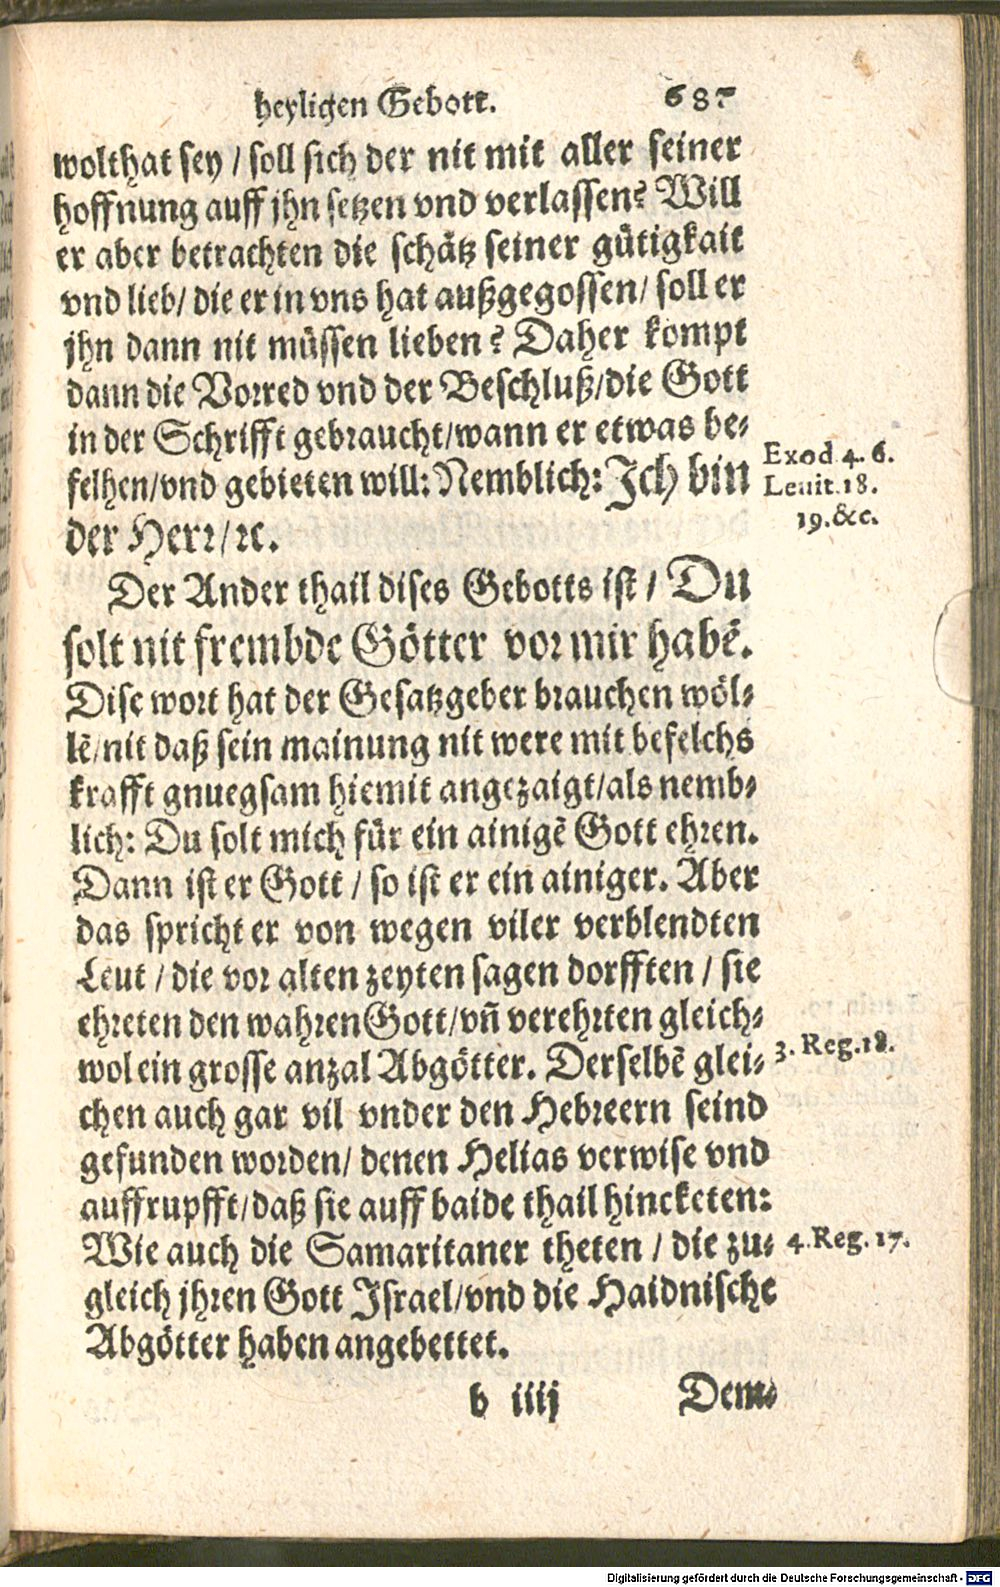 heyligen Gebott. 687
wolthat sey / soll sich der nit mit aller seiner
hoffnung auff jhn setzen vnd verlassen? Will
er aber betrachten die schätz seiner gütigkait
vnd lieb/ die er in vns hat außgegossen/ soll er
jhn dann nit müssen lieben? Daher kompt
dann die Vorred vnd der Beschluß/die Gott
in der Schrifft gebraucht/wann er etwas be-
felhen/vnd gebieten will: Nemblich: Jch bin
der Herr/ꝛc.
Exod 4. 6.
Leuit.18.
19.&c.
Der Ander thail dises Gebotts ist / Du
solt nit frembde Götter vor mir habẽ.
Dise wort hat der Gesatzgeber brauchen wöl-
lẽ/nit daß sein mainung nit were mit befelchs
krafft gnuegsam hiemit angezaigt/als nemb-
lich: Du solt mich für ein ainigẽ Gott ehren.
Dann ist er Gott / so ist er ein ainiger. Aber
das spricht er von wegen viler verblendten
Leut / die vor alten zeyten sagen dorfften / sie
ehreten den wahren Gott/vñ verehrten gleich-
wol ein grosse anzal Abgötter. Derselbẽ glei-
3. Reg.18.
chen auch gar vil vnder den Hebreern seind
gefunden worden/ denen Helias verwise vnd
auffrupfft/daß sie auff baide thail hincketen:
Wie auch die Samaritaner theten / die zu-
4.Reg.17.
gleich jhren Gott Jsrael/vnd die Haidnische
Abgötter haben angebettet.
b iiij Dem-
Digitalisierung gefördert durch die Deutsche Forschungsgemeinschaft - DFG